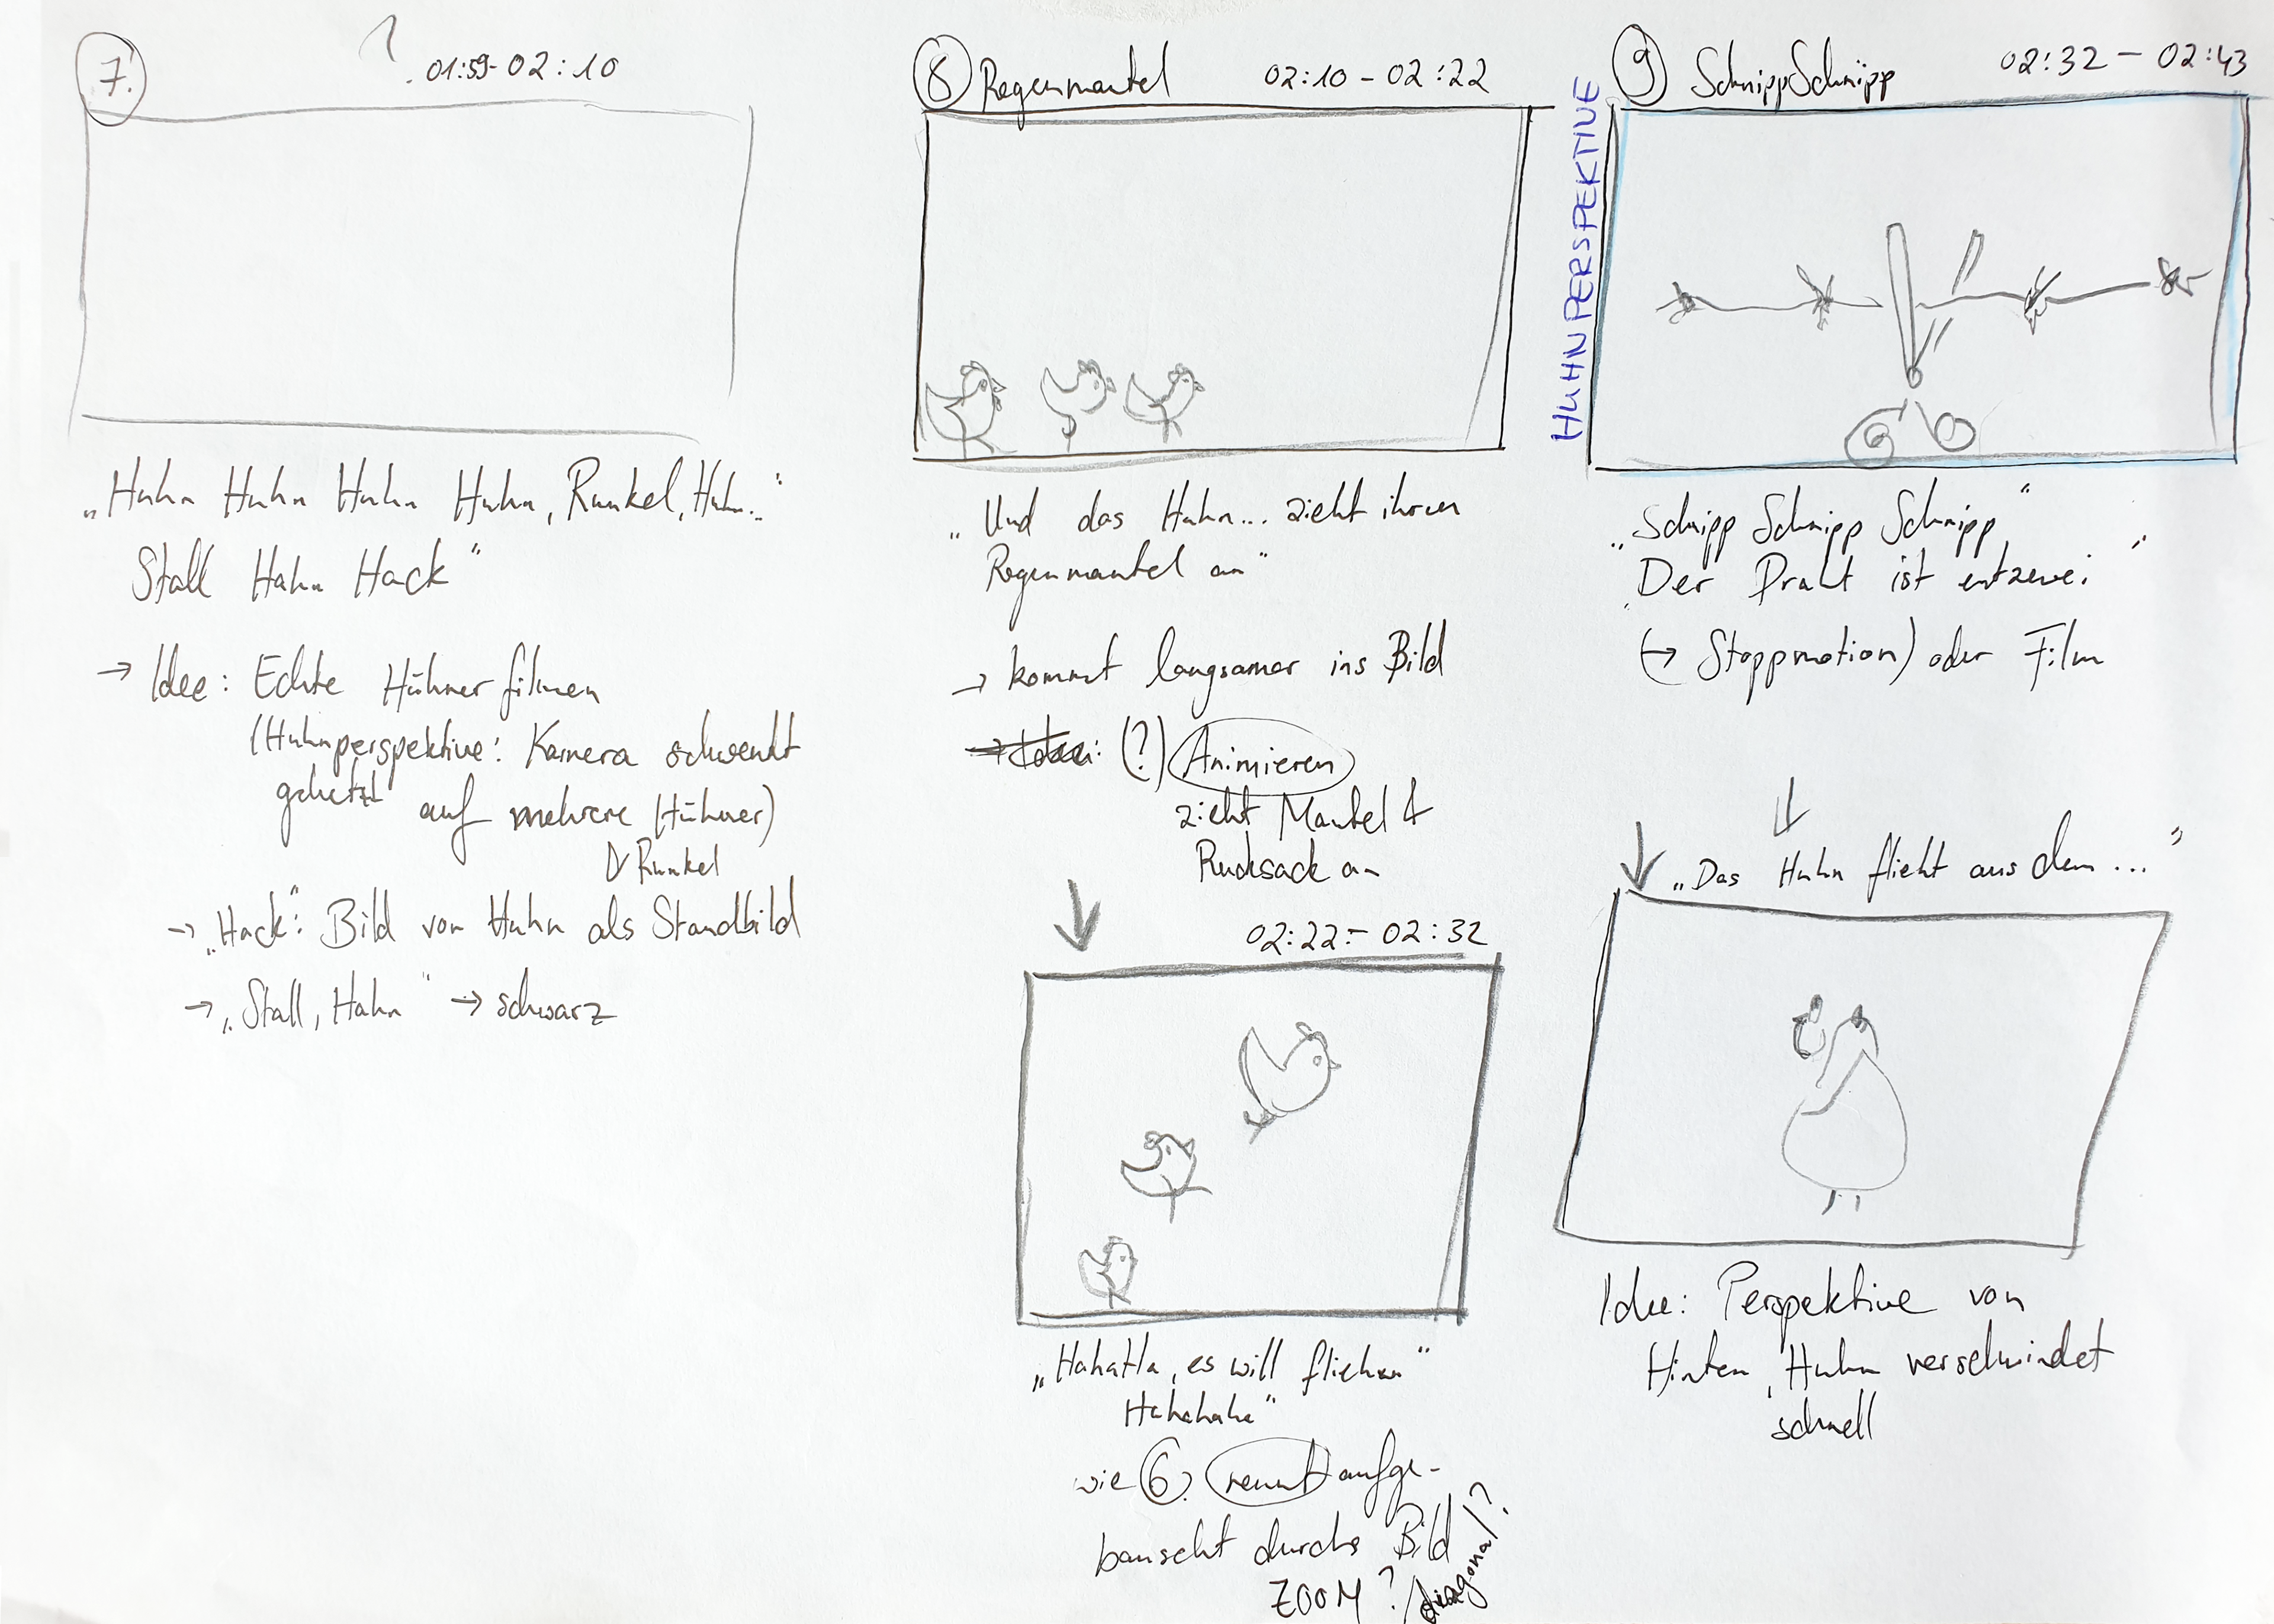 7. ? 01:59-02:10
„Huhn Huhn Huhn Huhn, Runkel, Huhn..."
Stall Hahn Hack"
→ Idee: Echte Hühner filmen
(Huhnperspektive: Kamera schwenkt
gehetzt auf mehrere Hühner)
Runkel
→ „Hack": Bild von Huhn als Standbild
→ „Stall, Hahn" → schwarz
8 Regenmantel 02:10-02:22
„Und das Huhn... zieht ihren
Regenmantel an"
→ kommt langsamer ins Bild
→ Idee: (?) Animieren
zieht Mantel &
Rucksack an
02:22 - 02:32
„Hahaha, es will fliehen"
Hahahaha"
wie 6. rennt aufge-
bauscht durchs Bild
ZOOM? / diagonal?
9 SchnippSchnipp 02:32 - 02:43
HUHNPERSPEKTIVE
„Schnipp Schnipp Schnipp"
„Der Draht ist entzwei"
(→ Stoppmotion) oder Film
„Das Huhn flieht aus dem ..."
Idee: Perspektive von
Hinten, Huhn verschwindet
schnell